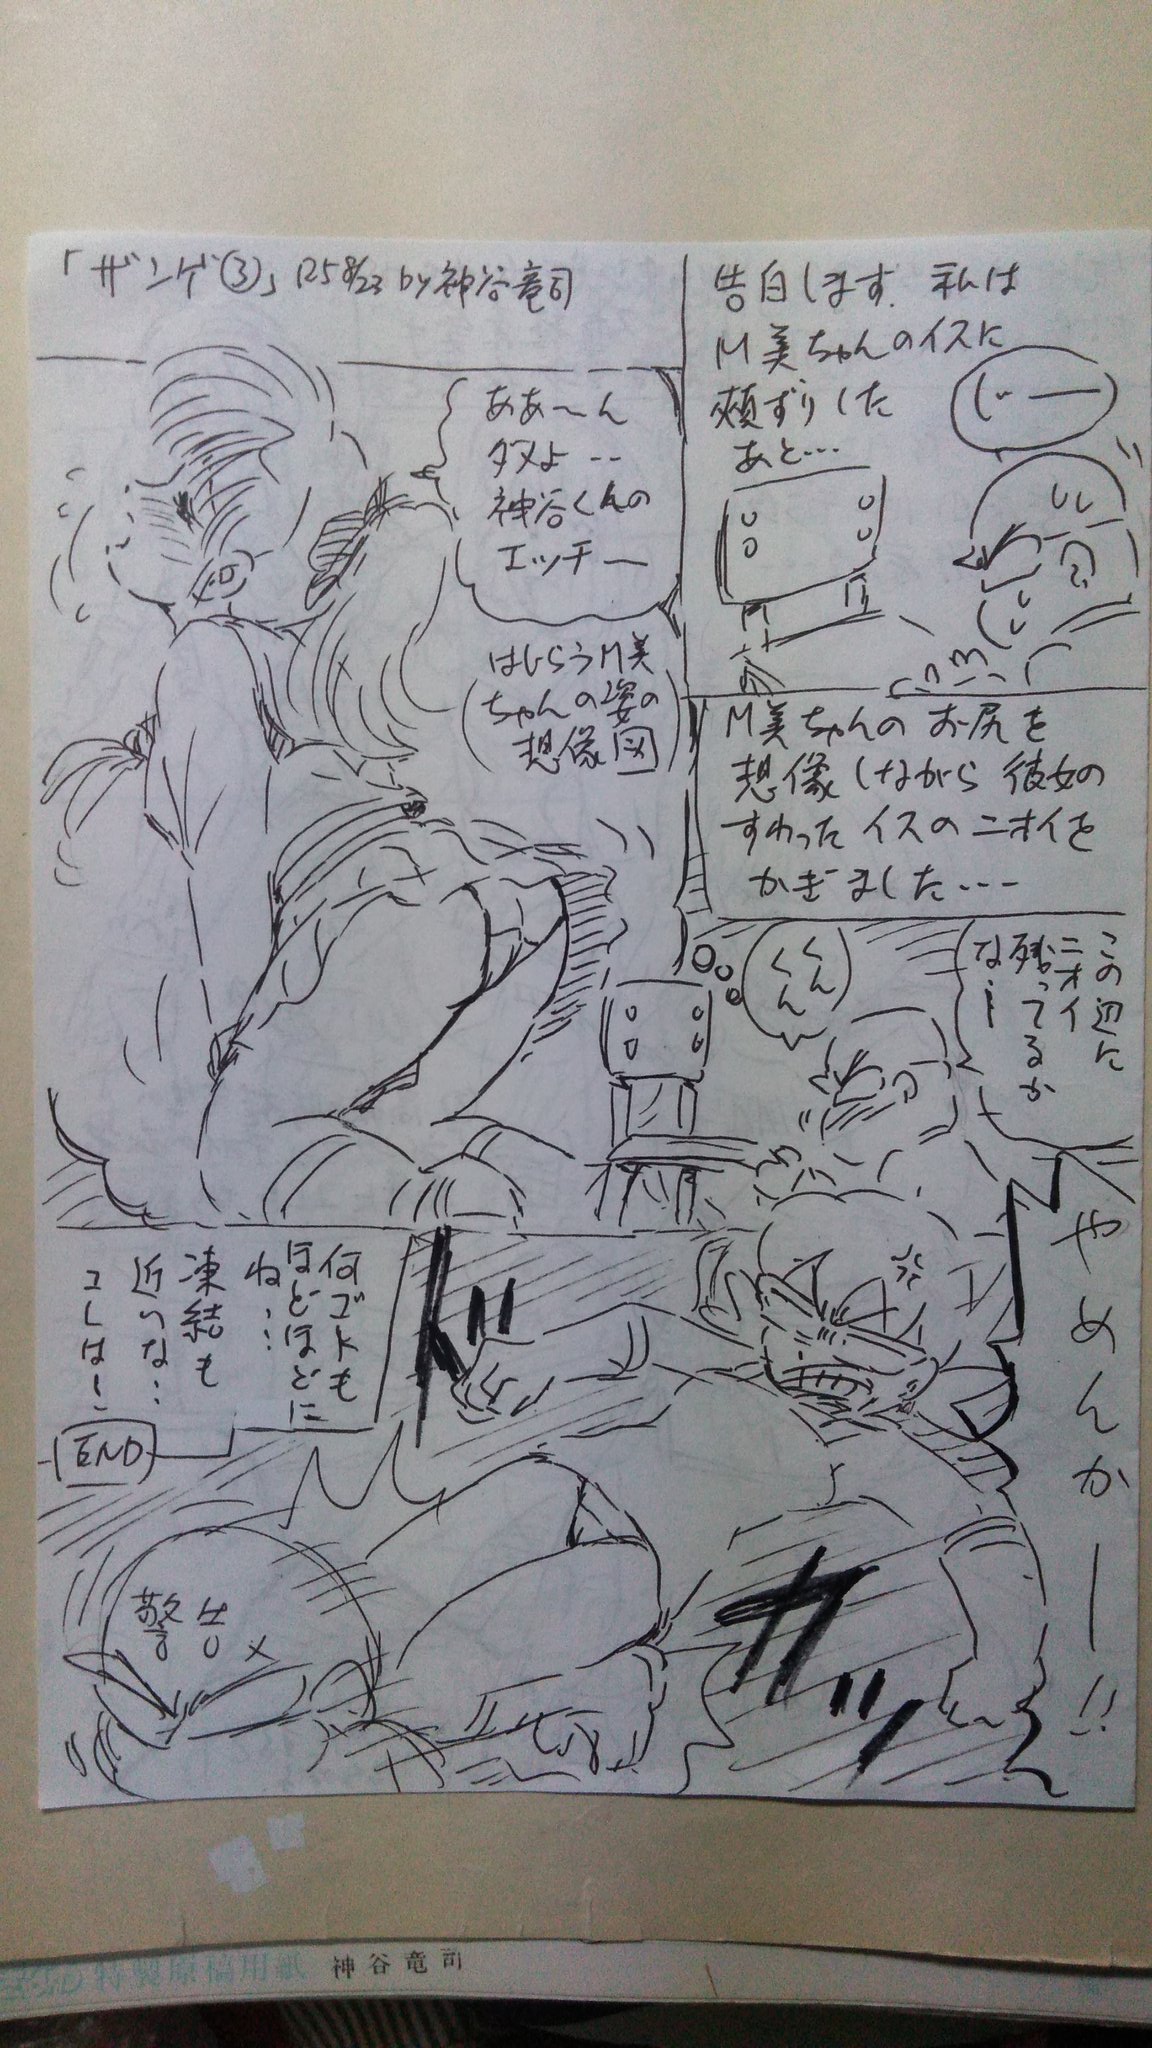 「ザンゲ③」'25 8/23 by 神谷竜司
告白します. 私は
M美ちゃんのイスに
頬ずりした
あと…
じー
M美ちゃんの お尻を
想像しながら 彼女の
すわった イスの ニオイを
かぎました…
この辺に
ニオイ
残ってるか
な…
くん
くん
ああ〜ん
ダメよ‥
神谷くんの
エッチー
(はじらうM美
ちゃんの姿の
想像図)
やめんかー!!
ドガッ
警告
何ゴトも
ほどほどに
ね…
凍結も
近いな…
コレは!
END
特製原稿用紙 神谷竜司